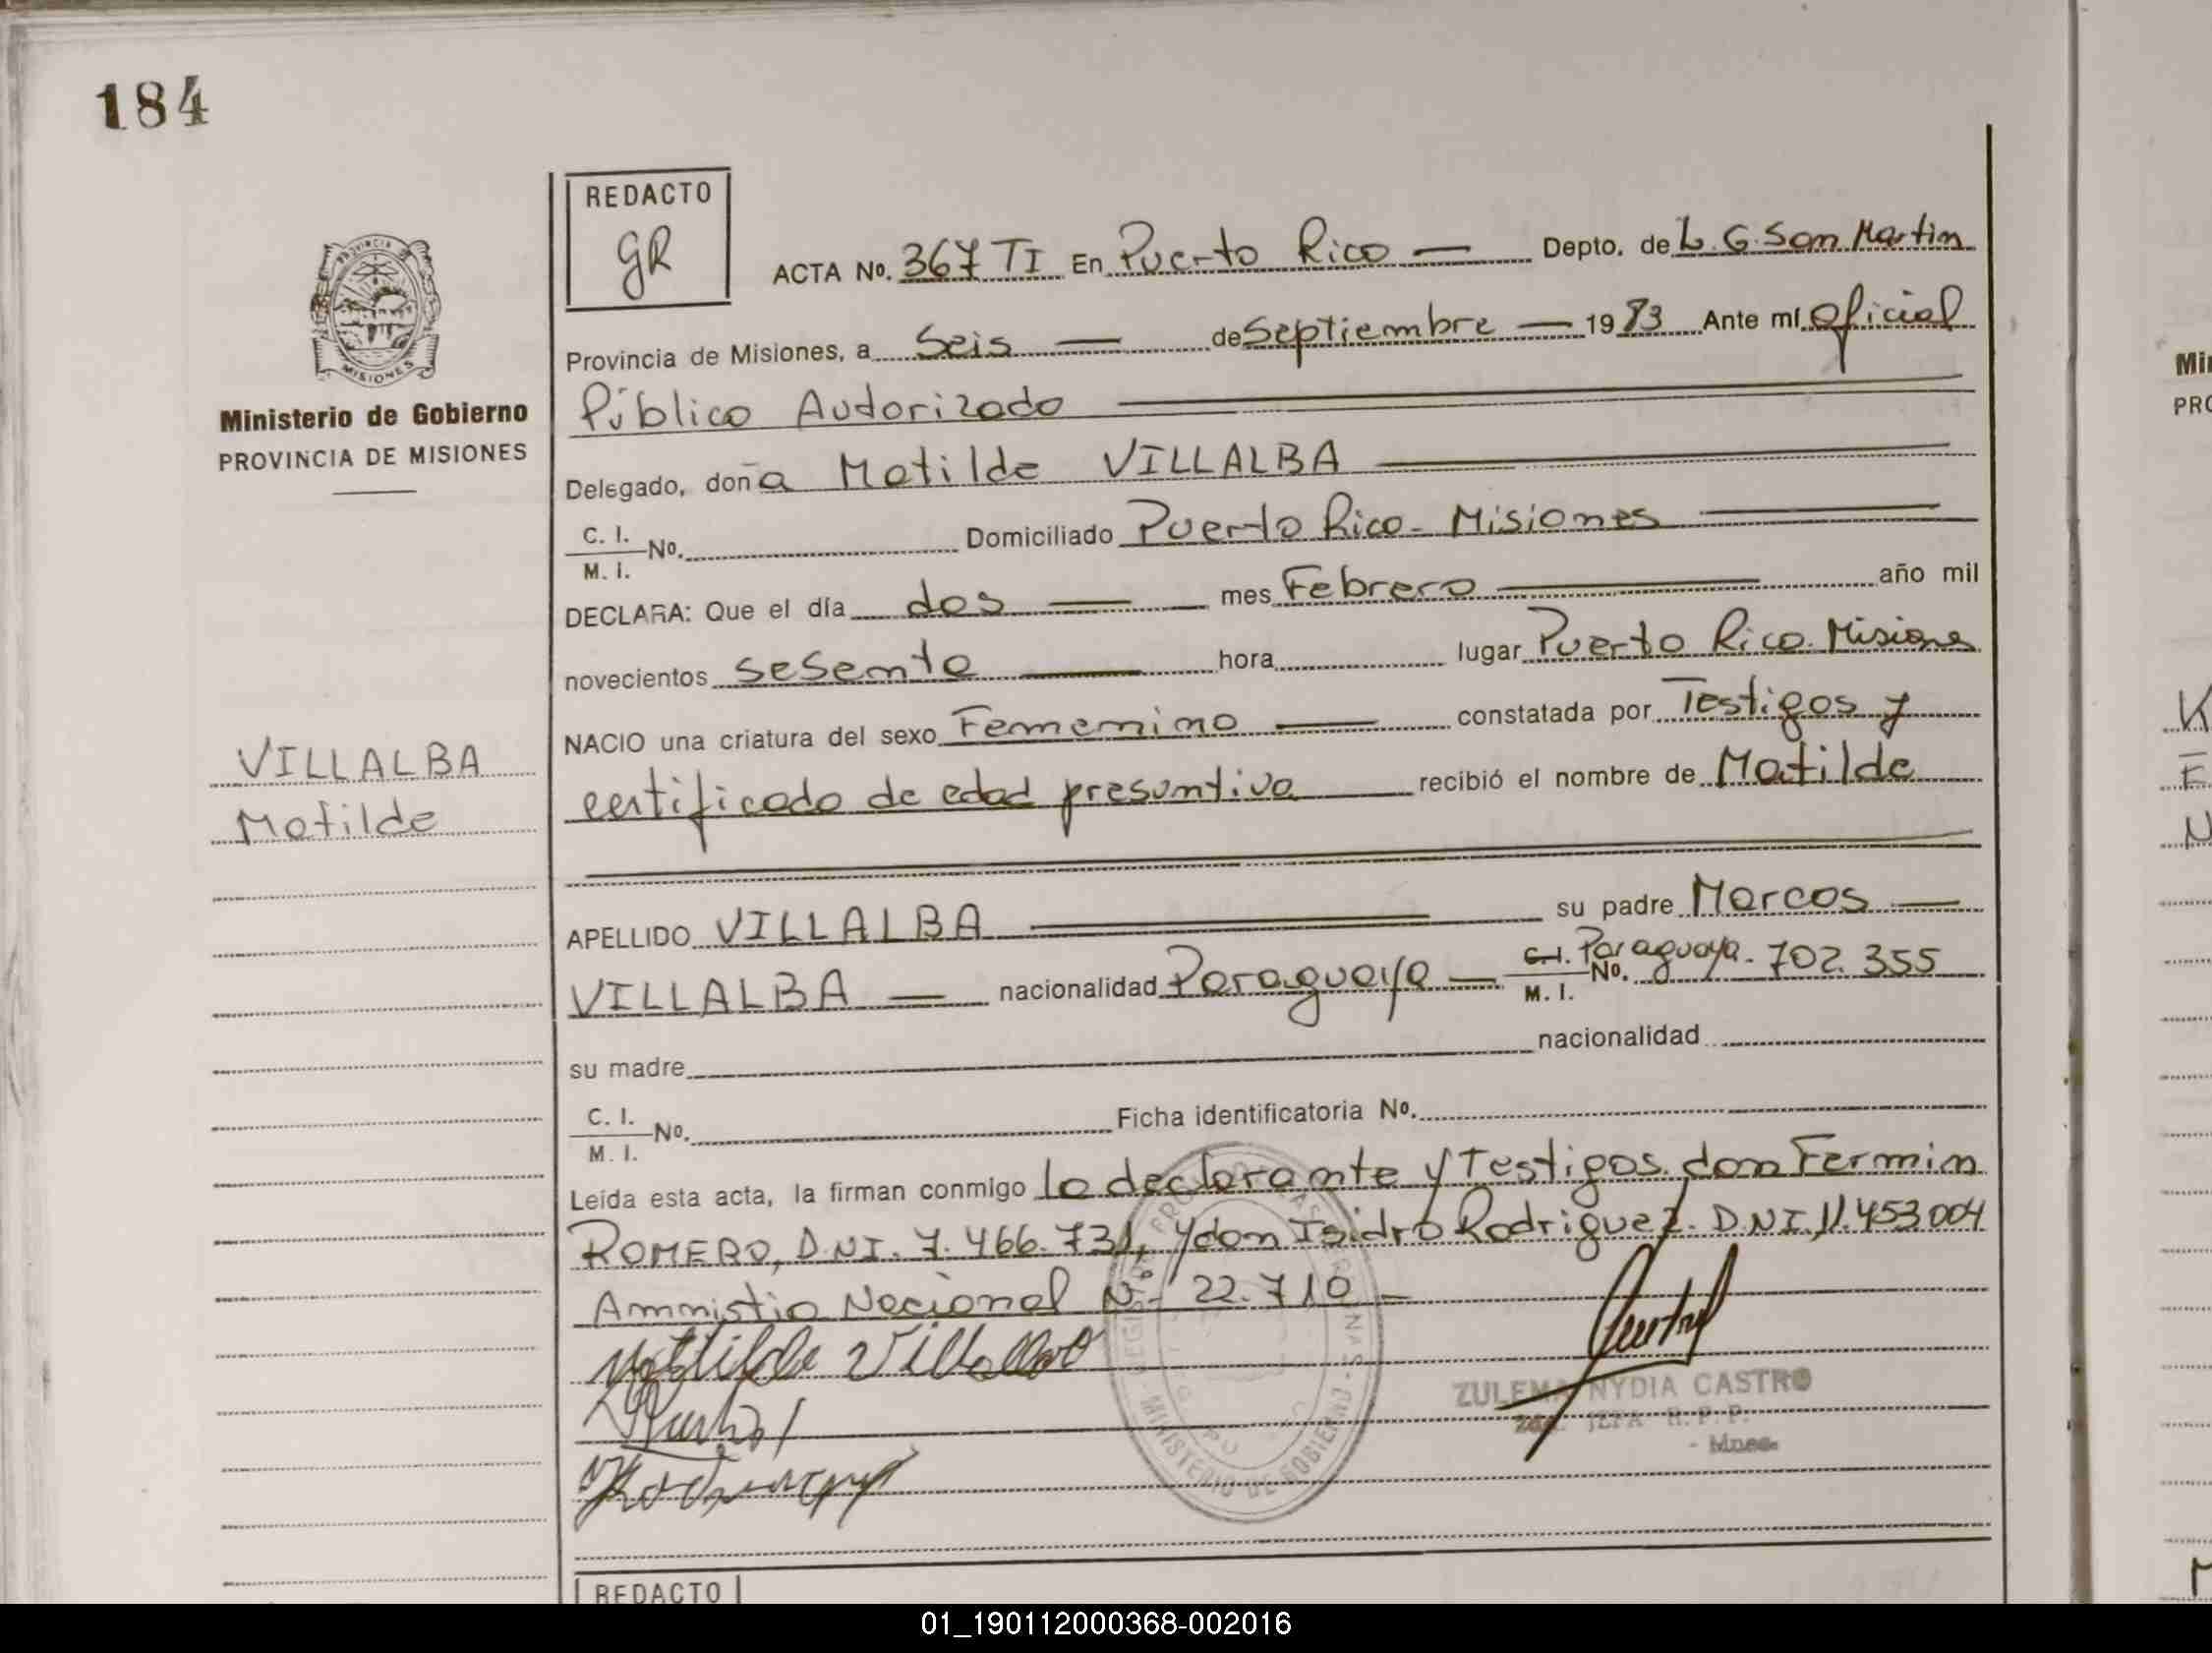 184
REDACTO
GR
ACTA No. 367 TI En Puerto Rico — Depto. de L. G. San Martin
Provincia de Misiones, a Seis — de Septiembre — 1983 Ante mí Oficial
Público Autorizado
Delegado, doña Matilde VILLALBA
C. I.
M. I. No. Domiciliado Puerto Rico - Misiones
DECLARA: Que el día dos — mes Febrero — año mil
novecientos sesenta — hora lugar Puerto Rico. Misiones
NACIO una criatura del sexo Femenino — constatada por Testigos y
certificado de edad presuntiva recibió el nombre de Matilde
APELLIDO VILLALBA su padre Marcos —
VILLALBA — nacionalidad Paraguaya — C.I. M. I. No. Paraguaya - 702.355
su madre nacionalidad
C. I.
M. I. No. Ficha identificatoria No.
Leída esta acta, la firman conmigo la declarante y Testigos don Fermin
ROMERO, D.N.I. 7.466.731, y don Isidro Rodriguez. D.N.I. 11.453004
Amnistia Nacional Nº 22.710 —
Matilde Villalba
ZULEMA NYDIA CASTRO
2da. JEFA R. P. P.
- Mnes.
MINISTERIO DE GOBIERNO
PROVINCIA
MISIONES
Ministerio de Gobierno
PROVINCIA DE MISIONES
VILLALBA
Matilde
REDACTO
Min
PRO
01_190112000368-002016